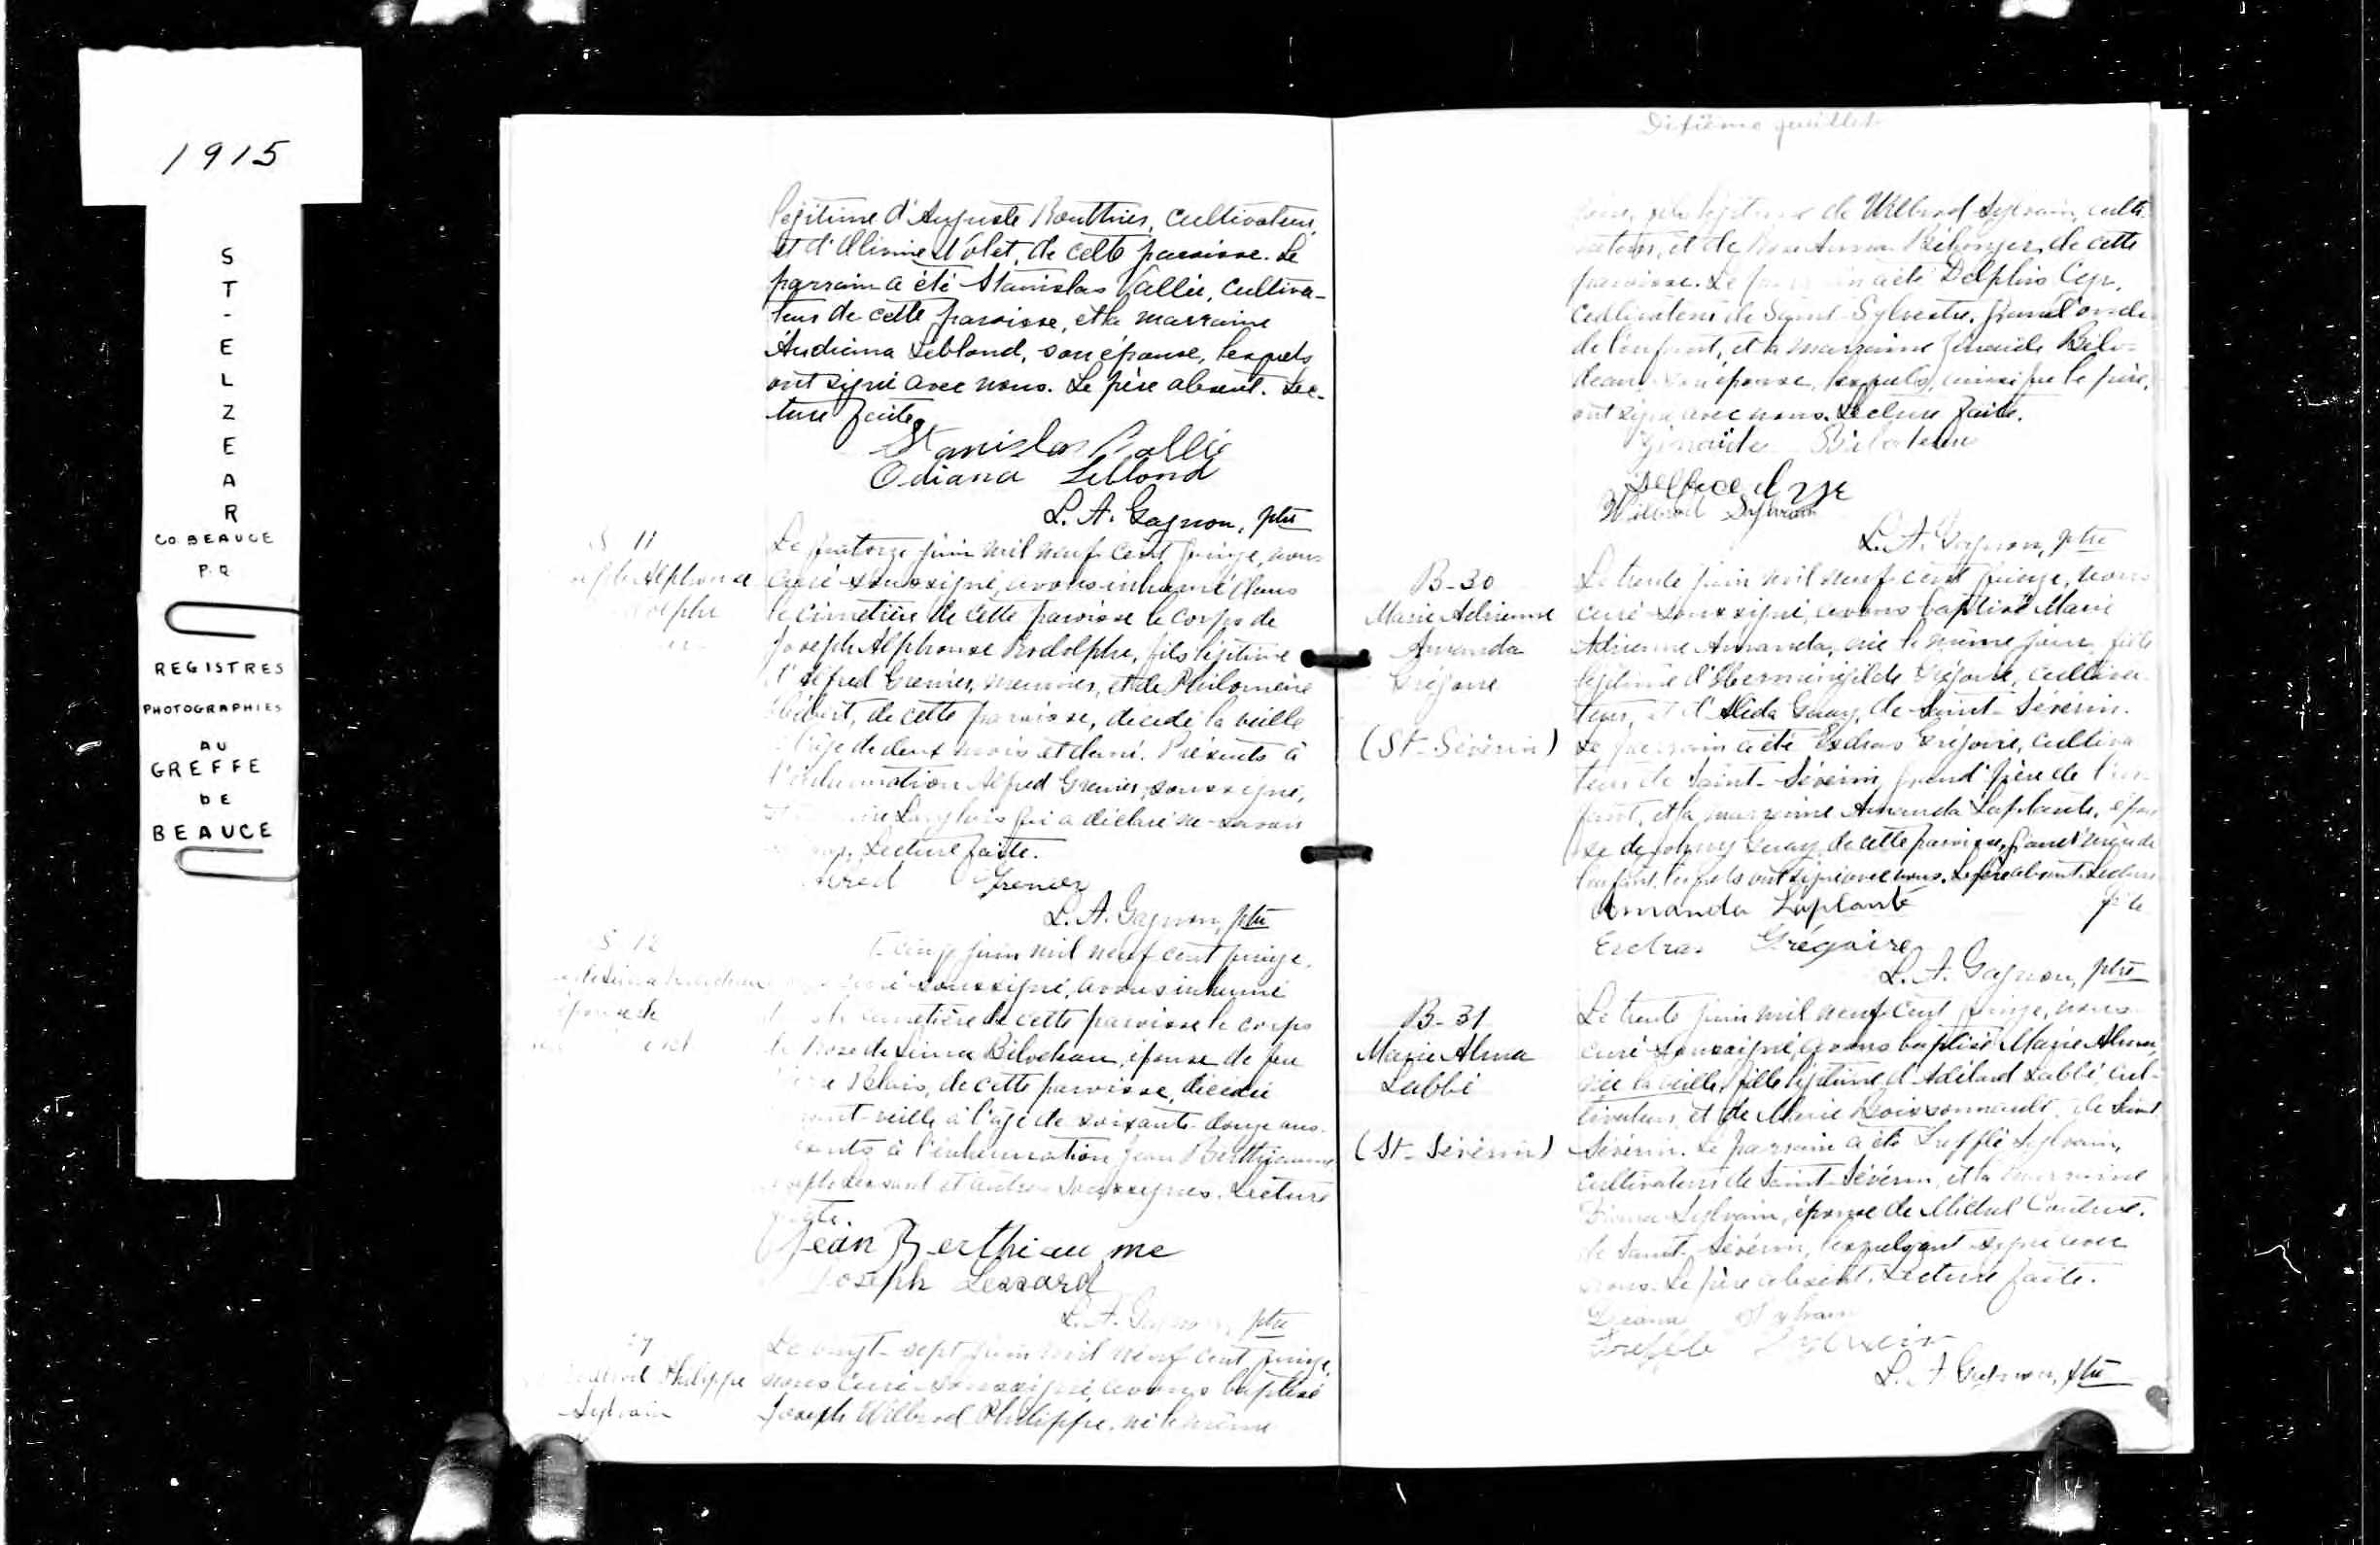 1915
ST-ELZEAR
CO. BEAUCE
P.Q
REGISTRES
PHOTOGRAPHIES
AU
GREFFE
DE
BEAUCE
légitime d'Auguste Routhier, cultivateur,
et d' Nolet, de cette paroisse. Le
parrain a été Stanislas Vallée, cultiva-
teur de cette paroisse, et la marraine
Audiana Leblond, son épouse, lesquels
ont signé avec nous. Le père absent. Lec-
ture faite.
Stanislas Vallée
Odiana Leblond
L. A. Gagnon, ptre
S 11
Alphonse
Le quatorze juin mil neuf cent quinze, nous
curé soussigné, avons inhumé dans
le cimetière de cette paroisse le corps de
Joseph Alphonse Rodolphe, fils légitime
d'Alfred Grenier, meunier, et de Philomène
de cette paroisse, décédé la veille
l'âge de deux mois et demi. Présents à
l'inhumation Alfred Grenier, soussigné,
Langlois qui a déclaré ne savoir
Lecture faite.
Grenier
L. A. Gagnon, ptre
S 12
épouse de
juin mil neuf cent quinze,
soussigné, avons inhumé
cimetière de cette paroisse le corps
de Rose de Lima Bilodeau, épouse de feu
de cette paroisse, décédée
veille à l'âge de soixante-douze ans.
à l'inhumation Jean Berthiaume
Lessard et autres soussignés. Lecture
faite.
Jean Berthiaume
Joseph Lessard
L. A. Gagnon, ptre
Philippe
Sylvain
Le vingt-sept juin mil neuf cent quinze,
nous curé soussigné, avons baptisé
Joseph Wilbrod Philippe, né le même
Dixième feuillet
jour, fils légitime de Wilbrod Sylvain, culti-
vateur, et de Rose Anna Bélanger, de cette
paroisse. Le parrain a été Delphis Cyr,
cultivateur de Saint-Sylvestre, grand oncle
de l'enfant, et la marraine Zénaïde Bilo-
deau son épouse, lesquels, ainsi que le père,
ont signé avec nous. Lecture faite.
Zénaïde Bilodeau
Wilbrod Sylvain
L. A. Gagnon, ptre
B-30
Marie Adrienne
Amanda
Grégoire
(St-Sévérin)
Le trente juin mil neuf cent quinze, nous
curé soussigné, avons baptisé Marie
Adrienne Amanda, née le même jour, fille
légitime d'Herménégilde Grégoire, cultiva-
teur, et d'Alida Guay, de Saint-Sévérin.
Le parrain a été Esdras Grégoire, cultiva
teur de Saint-Sévérin, grand'père de l'en-
fant, et la marraine Amanda Laplante, épou
se de Johnny Guay, de cette paroisse, grand'mère de
l'enfant, lesquels ont signé avec nous. Le père absent. Lecture
faite
Amanda Laplante
Esdras Grégoire
L. A. Gagnon, ptre
B-31
Marie Alma
Labbé
(St-Sévérin)
Le trente juin mil neuf cent quinze, nous
curé soussigné, avons baptisé Marie Alma,
née la veille, fille légitime d'Adélard Labbé, cul-
tivateur, et de Marie Boissonnault, de Saint
Sévérin. Le parrain a été Trefflé Sylvain,
cultivateur de Saint-Sévérin, et la marraine
Diana Sylvain, épouse de Michel Couture,
de Saint-Sévérin, lesquels ont signé avec
nous. Le père absent. Lecture faite.
Diana Sylvain
Trefflé Sylvain
L. A. Gagnon, ptre